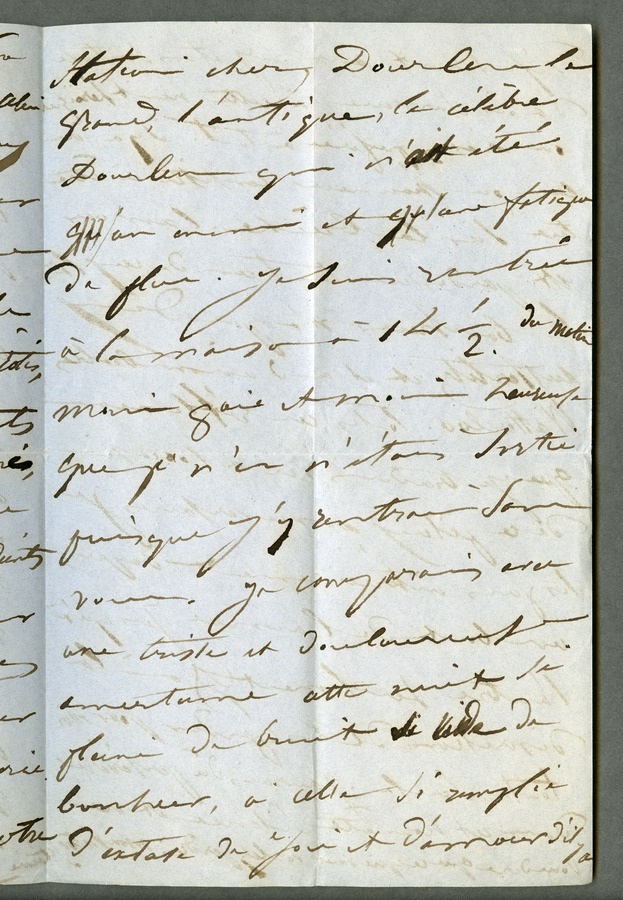 station chez Dourlen le
grand, l'antique, le célèbre
Dourlen qui n'a été
qu'un ennui et qu'une fatigue
de plus. Je suis rentrée
à la maison à 1 h ½. du matin
moins gaie et moins heureuse
que je n'en étais sortie
puisque j'y rentrais sans
vous. Je comparais avec
une triste et douloureuse
amertume cette nuit si
pleine de bruit si vide de
bonheur, à celle si remplie
d'extase de joie et d'amour d'il y a